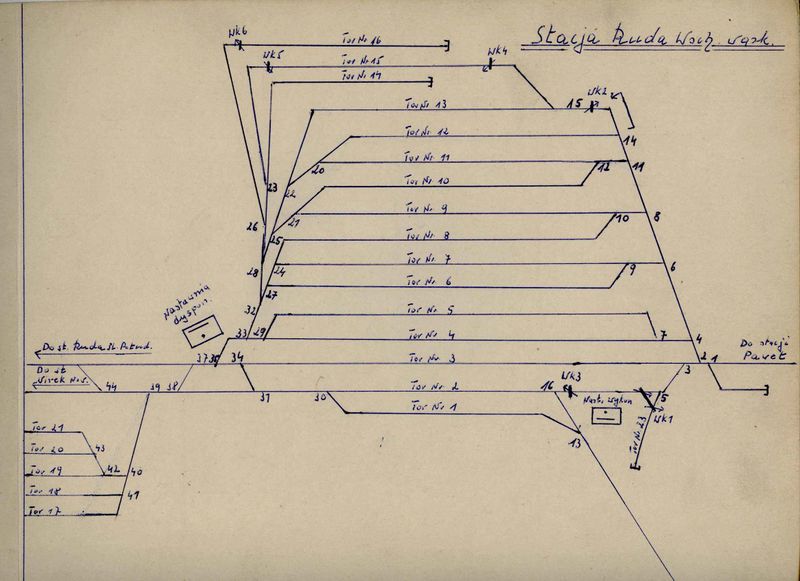 Stacja Ruda Wsch. wąsk.
Wk6
Tor Nr 16
Wk5
Tor Nr 15
Wk4
Tor Nr 14
Tor Nr 13
15
Wk2
14
Tor Nr 12
20
Tor Nr 11
12
11
23
22
Tor Nr 10
21
Tor Nr 9
10
8
26
25
Tor Nr. 8
28
24
Tor Nr. 7
6
27
Tor Nr. 6
9
Nastawnia
dyspon.
32
Tor Nr. 5
33
29
Tor Nr. 4
7
4
Do st. Ruda
37
36
34
Tor Nr. 3
3
2
1
Do stacji
Paweł
Do st.
Wirek
44
39
38
31
30
Tor Nr. 2
16
Wk3
5
Wk1
Tor Nr. 1
Nast. wykon
13
Tor Nr 23
Tor 21
43
Tor 20
Tor 19
42
40
Tor 18
41
Tor 17